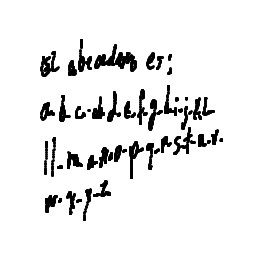 el abecedario es:
a.b.c.ch.d.e.f.g.h.i.j.k.l.
ll.m.n.ñ.o.p.q.r.s.t.u.v.
w.x.y.z